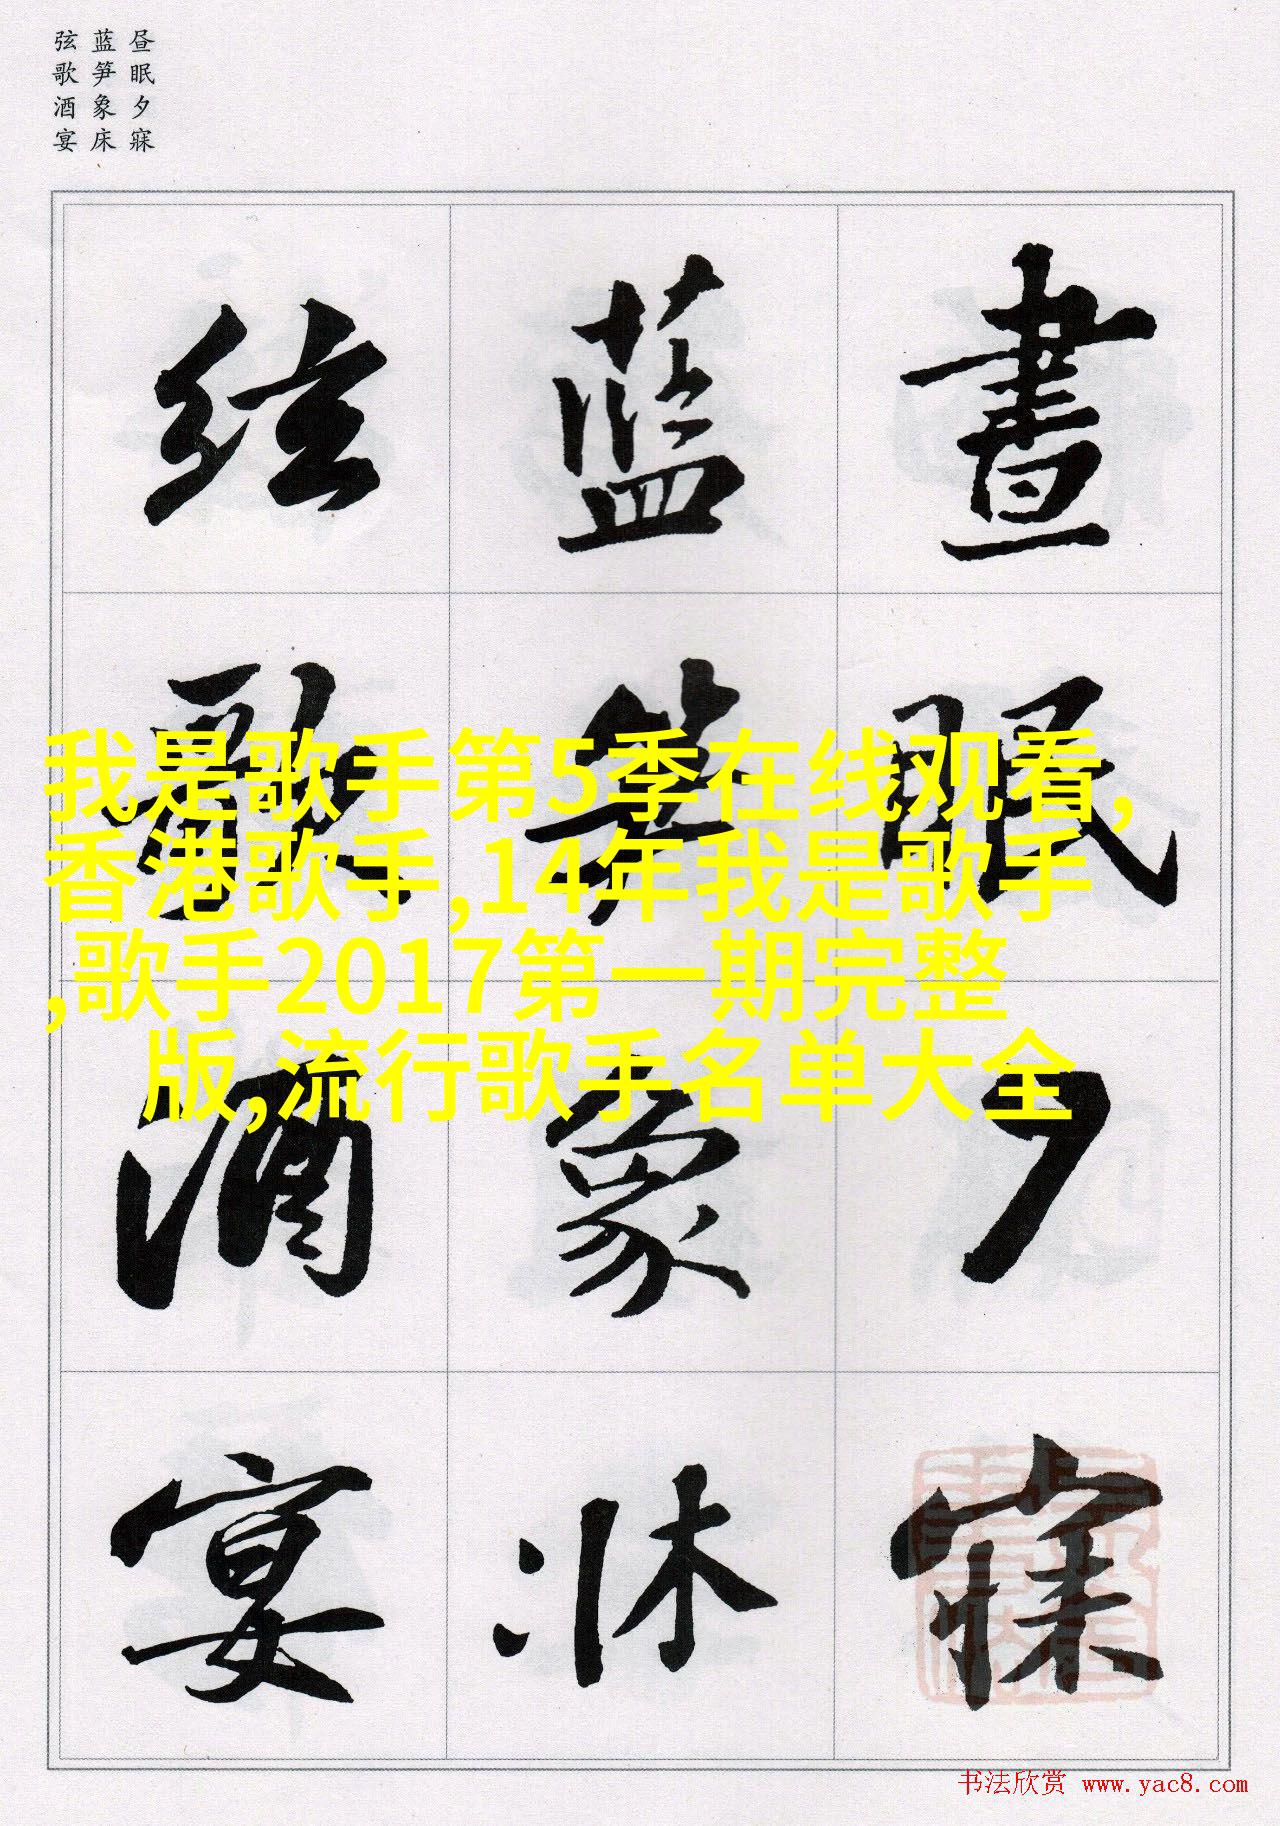 昼眠夕寐
蓝笋象床
弦歌酒宴
晝眠夕寐
蓝笋象牀
弦歌酒宴
我是歌手第5季在线观看,
香港歌手,14年我是歌手
,歌手2017第一期完整
版,流行歌手名单大全
书法欣赏 www.yac8.com